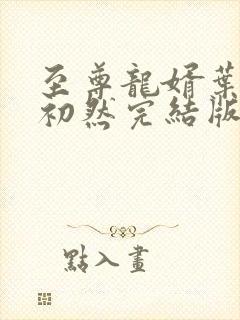 至尊龍婿葉
初然完結版
點入畫